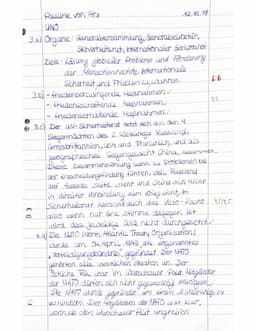 Pauline von Arx 12.06.18
UNO
3.a) Organe: Generalversammlung, Generalsekretär,
Sicherheitsrat, Internationaler Gerichtshof
Ziele: Lösung globaler Probleme und Förderung
der Menschenrechte. Internationale
Sicherheit und Frieden zu wahren.
3.b) - friedenserzwingende Massnahmen
- friedensschaffende Massnahmen
- friedenserhaltende Massnahmen
3.c) Der UN-Sicherheitsrat setzt sich aus den 4
Siegermächten des 2. Weltkriegs Russland,
Grossbritannien, USA und Frankreich, und als
geographisches Gegengewicht China, zusammen.
Diese Zusammensetzung kann zu Problemen bei
der Entscheidungsfindung führen, weil Russland
auf Assads Seite steht und China sich nicht
in direkter Verbindung zum Krieg sieht. Im
Sicherheitsrat herrscht auch das Veto-Recht
also wenn nur eine Stimme dagegen ist
wird das jeweilige Ziel nicht durchgesetzt.
4.a) Die NATO (North Atlantic Treaty Organisation)
wurde am 04. April 1949 als sogenanntes
"Verteidigungsbündnis" gegründet. Der NATO
gehörten alle westlichen Staaten an. Der
östliche Teil war im Warschauer Pakt. Mitglieder
der NATO dürfen sich nicht gegenseitig angreifen.
Die NATO wurde gegründet um einen 3. Weltkrieg zu
verhindern. Den Mitgliedern der NATO war klar,
wenn sie den Warschauer Pakt angreifen